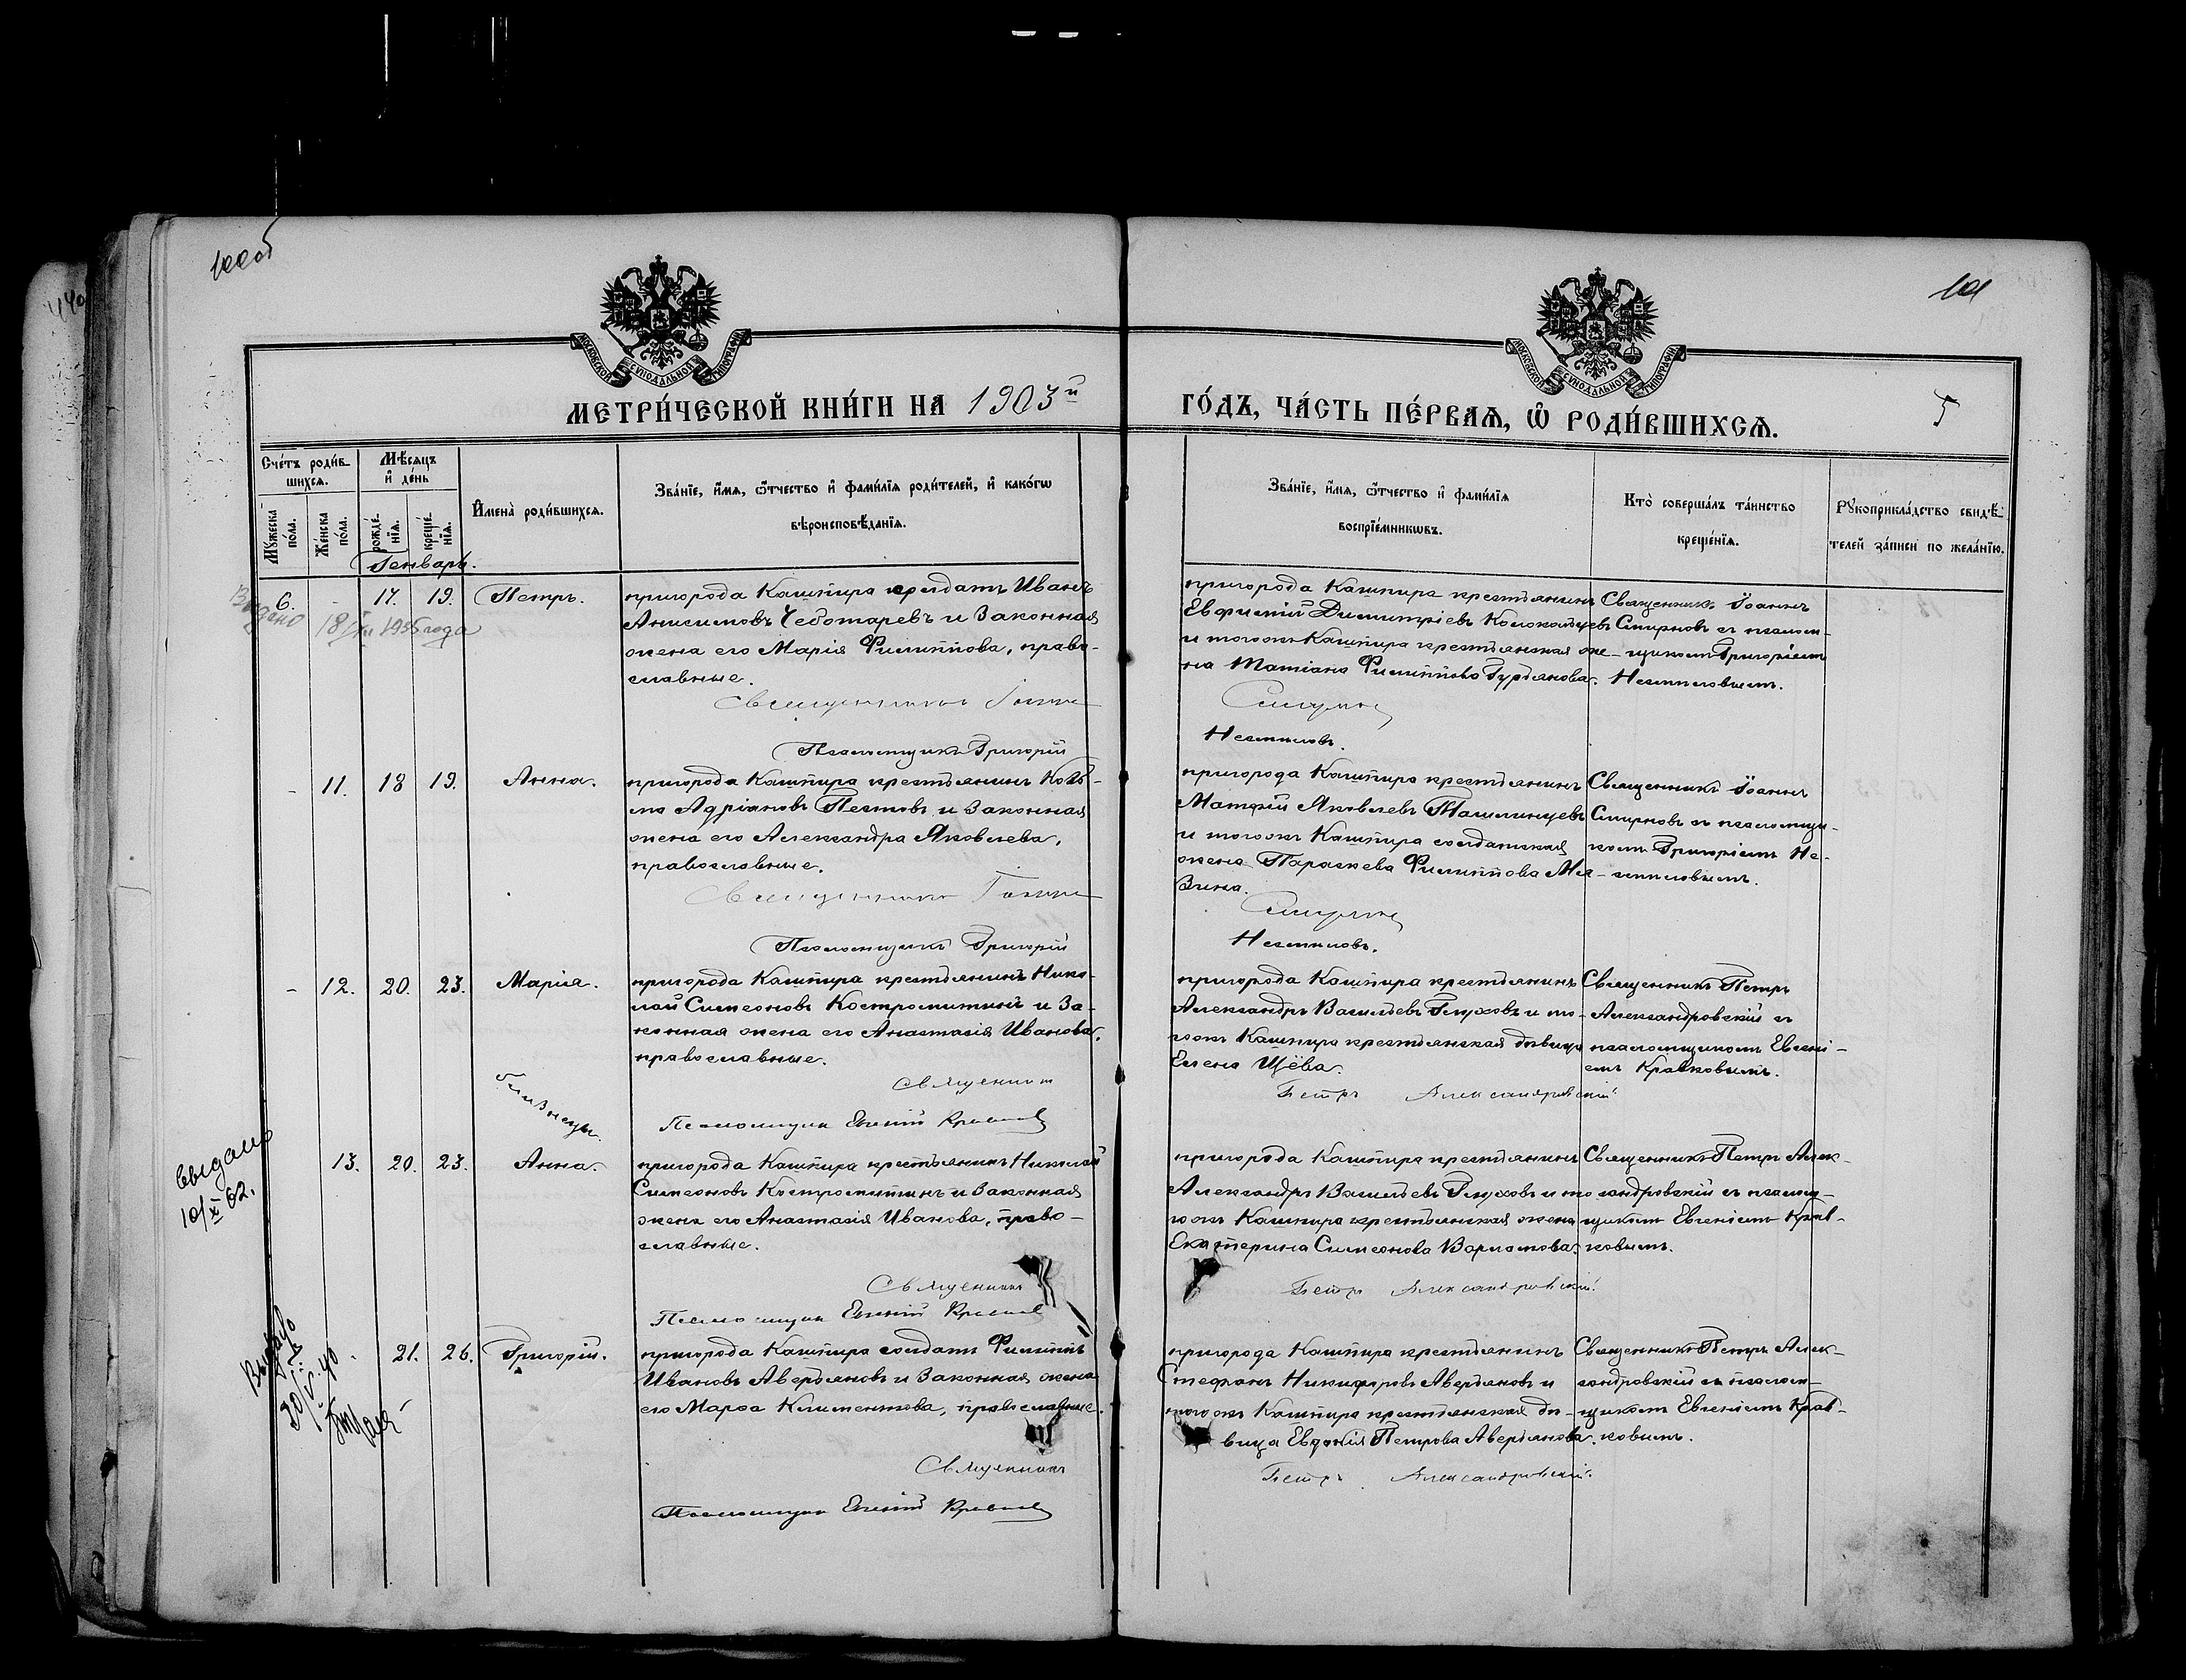 100об
101
МОСКОВСКОЙ СУНОДАЛЬНОЙ ТИПОГРАФІИ
МОСКОВСКОЙ СУНОДАЛЬНОЙ ТИПОГРАФІИ
МЕТРИ́ЧЕСКОЙ КНИ́ГИ НА 1903й
ГО́ДЪ, ЧА́СТЬ ПЕ́РВАѦ, Ѡ҆ РОДИ́ВШИХСѦ.
5
Сче́тъ роди́в-
шихсѧ.
Мѣ́сѧцъ
и҆ де́нь
Мꙋ́жеска
по́ла.
Же́нска
по́ла.
рожде́-
нїѧ.
креще́-
нїѧ.
И҆мена̀ роди́вшихсѧ.
Зва́нїе, и҆́мѧ, ѻ҆́тчество и҆ фами́лїѧ роди́телей, и҆ како́гѡ
вѣроисповѣ́данїѧ.
Зва́нїе, и҆́мѧ, ѻ҆́тчество и҆ фами́лїѧ
воспрїе́мникѡвъ.
Кто̀ соверша́лъ та́инство
креще́нїѧ.
Рꙋкоприкла́дство свидѣ́-
телей за́писи по жела́нїю.
Генварь.
6. - 17. 19. Петръ.
Выдано
18/XII 1935 года
пригорода Кашпира солдатъ Иванъ
Анисимовъ Чеботаревъ и законная
жена его Марія Филиппова, право-
славные.
Священникъ Іоаннъ
Псаломщикъ Григорій
пригорода Кашпира крестьянинъ
Евфимій Димитріевъ Колокольцевъ
и тогожъ Кашпира крестьянская же-
на Татіана Филиппова Гурьянова.
Смирновъ
Несмѣловъ.
Священникъ Іоаннъ
Смирновъ съ псалом-
щикомъ Григоріемъ
Несмѣловымъ.
- 11. 18 19. Анна.
пригорода Кашпира крестьянинъ Козь-
ма Адріановъ Пестовъ и законная
жена его Александра Яковлева,
православные.
Священникъ Іоаннъ
Псаломщикъ Григорій
пригорода Кашпира крестьянинъ
Матфій Яковлевъ Ташлинцевъ
и тогожъ Кашпира солдатская
жена Параскева Филиппова Мя-
зина.
Смирновъ
Несмѣловъ.
Священникъ Іоаннъ
Смирновъ съ псаломщи-
комъ Григоріемъ Не-
смѣловымъ.
- 12. 20. 23. Марія.
близнецы.
пригорода Кашпира крестьянинъ Нико-
лай Симеоновъ Костромитинъ и за-
конная жена его Анастасія Иванова,
православные.
Священникъ
Псаломщикъ Евгеній Кравковъ
пригорода Кашпира крестьянинъ
Александръ Васильевъ Глуховъ и то-
гожъ Кашпира крестьянская дѣвица
Елена Щёва.
Петръ Александровскій.
Священникъ Петръ
Александровскій съ
псаломщикомъ Евгені-
емъ Кравковымъ.
выдано
10/X 62.
13. 20. 23. Анна.
пригорода Кашпира крестьянинъ Николай
Симеоновъ Костромитинъ и законная
жена его Анастасія Иванова, право-
славные.
Священникъ
Псаломщикъ Евгеній Кравковъ
пригорода Кашпира крестьянинъ
Александръ Васильевъ Глуховъ и то
гожъ Кашпира крестьянская жена
Екатерина Симеонова Варламова.
Петръ Александровскій.
Священникъ Петръ Алек-
сандровскій съ псалом-
щикомъ Евгеніемъ Крав-
ковымъ.
Выдано
30/V.40
- 21. 26. Григорій.
пригорода Кашпира солдатъ Филиппъ
Ивановъ Аверьяновъ и законная жена
его Марѳа Климентова, православные.
Священникъ
Псаломщикъ Евгеній Кравковъ
пригорода Кашпира крестьянинъ
Стефанъ Никифоровъ Аверьяновъ и
тогожъ Кашпира крестьянская дѣ-
вица Евдокія Петрова Аверьянова.
Петръ Александровскій.
Священникъ Петръ Алек-
сандровскій съ псалом-
щикомъ Евгеніемъ Крав-
ковымъ.